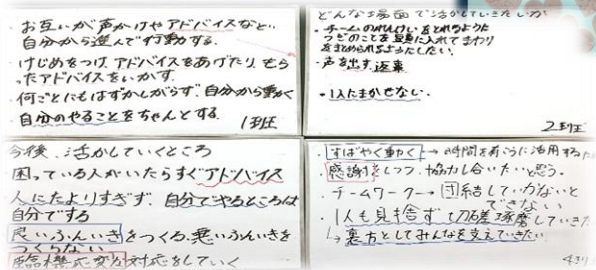 ・お互いが声かけやアドバイスなど、
自分から進んで行動する。
・けじめをつけ、アドバイスをあげたり、もら
ったアドバイスをいかす。
・何ごとにもはずかしがらず、自分から動く
・自分のやることをちゃんとする。
1班
どんな場面で活かしていきたいか
・チームのれんけいをとれるように
つぎのことを入れてまわり
をまとめられるようにしたい。
・声を出す、返事
・1人にまかせない。
2班
今後、活かしていくところ
困っている人がいたらすぐアドバイス
人にたよりすぎず、自分でやるところは
自分でする
良いふんいきをつくる、悪いふんいきを
つくらない
臨機応変な対応をしていく
・すばやく動く→時間を有こうに活用する
・感謝をしつつ、協力し合いたいと思う。
・チームワーク→団結していかないと
できない
・1人も見捨ず切磋琢磨していきた
→裏方としてみんなを支えていきたい
4班